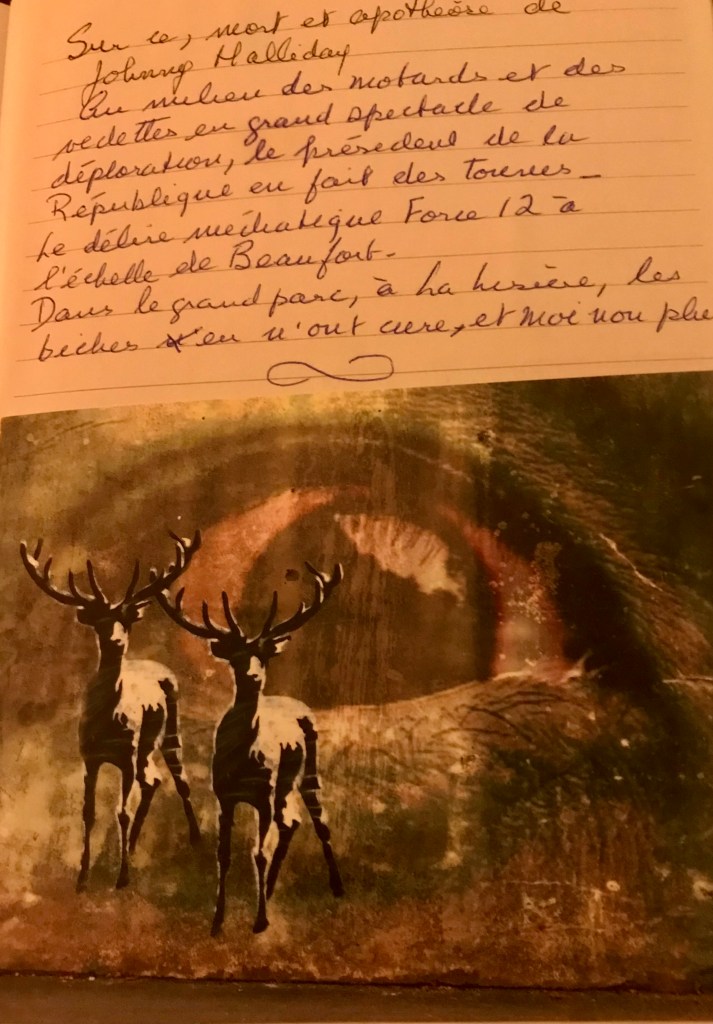 Sur ce, mort et apothéose de
Johnny Halliday
Au milieu des motards et des
vedettes en grand spectacle de
déploration, le président de la
République en fait des tonnes _
Le délire médiatique Force 12 à
l'échelle de Beaufort -
Dans le grand parc, à la lisière, les
biches en n'ont cure, et moi non plu